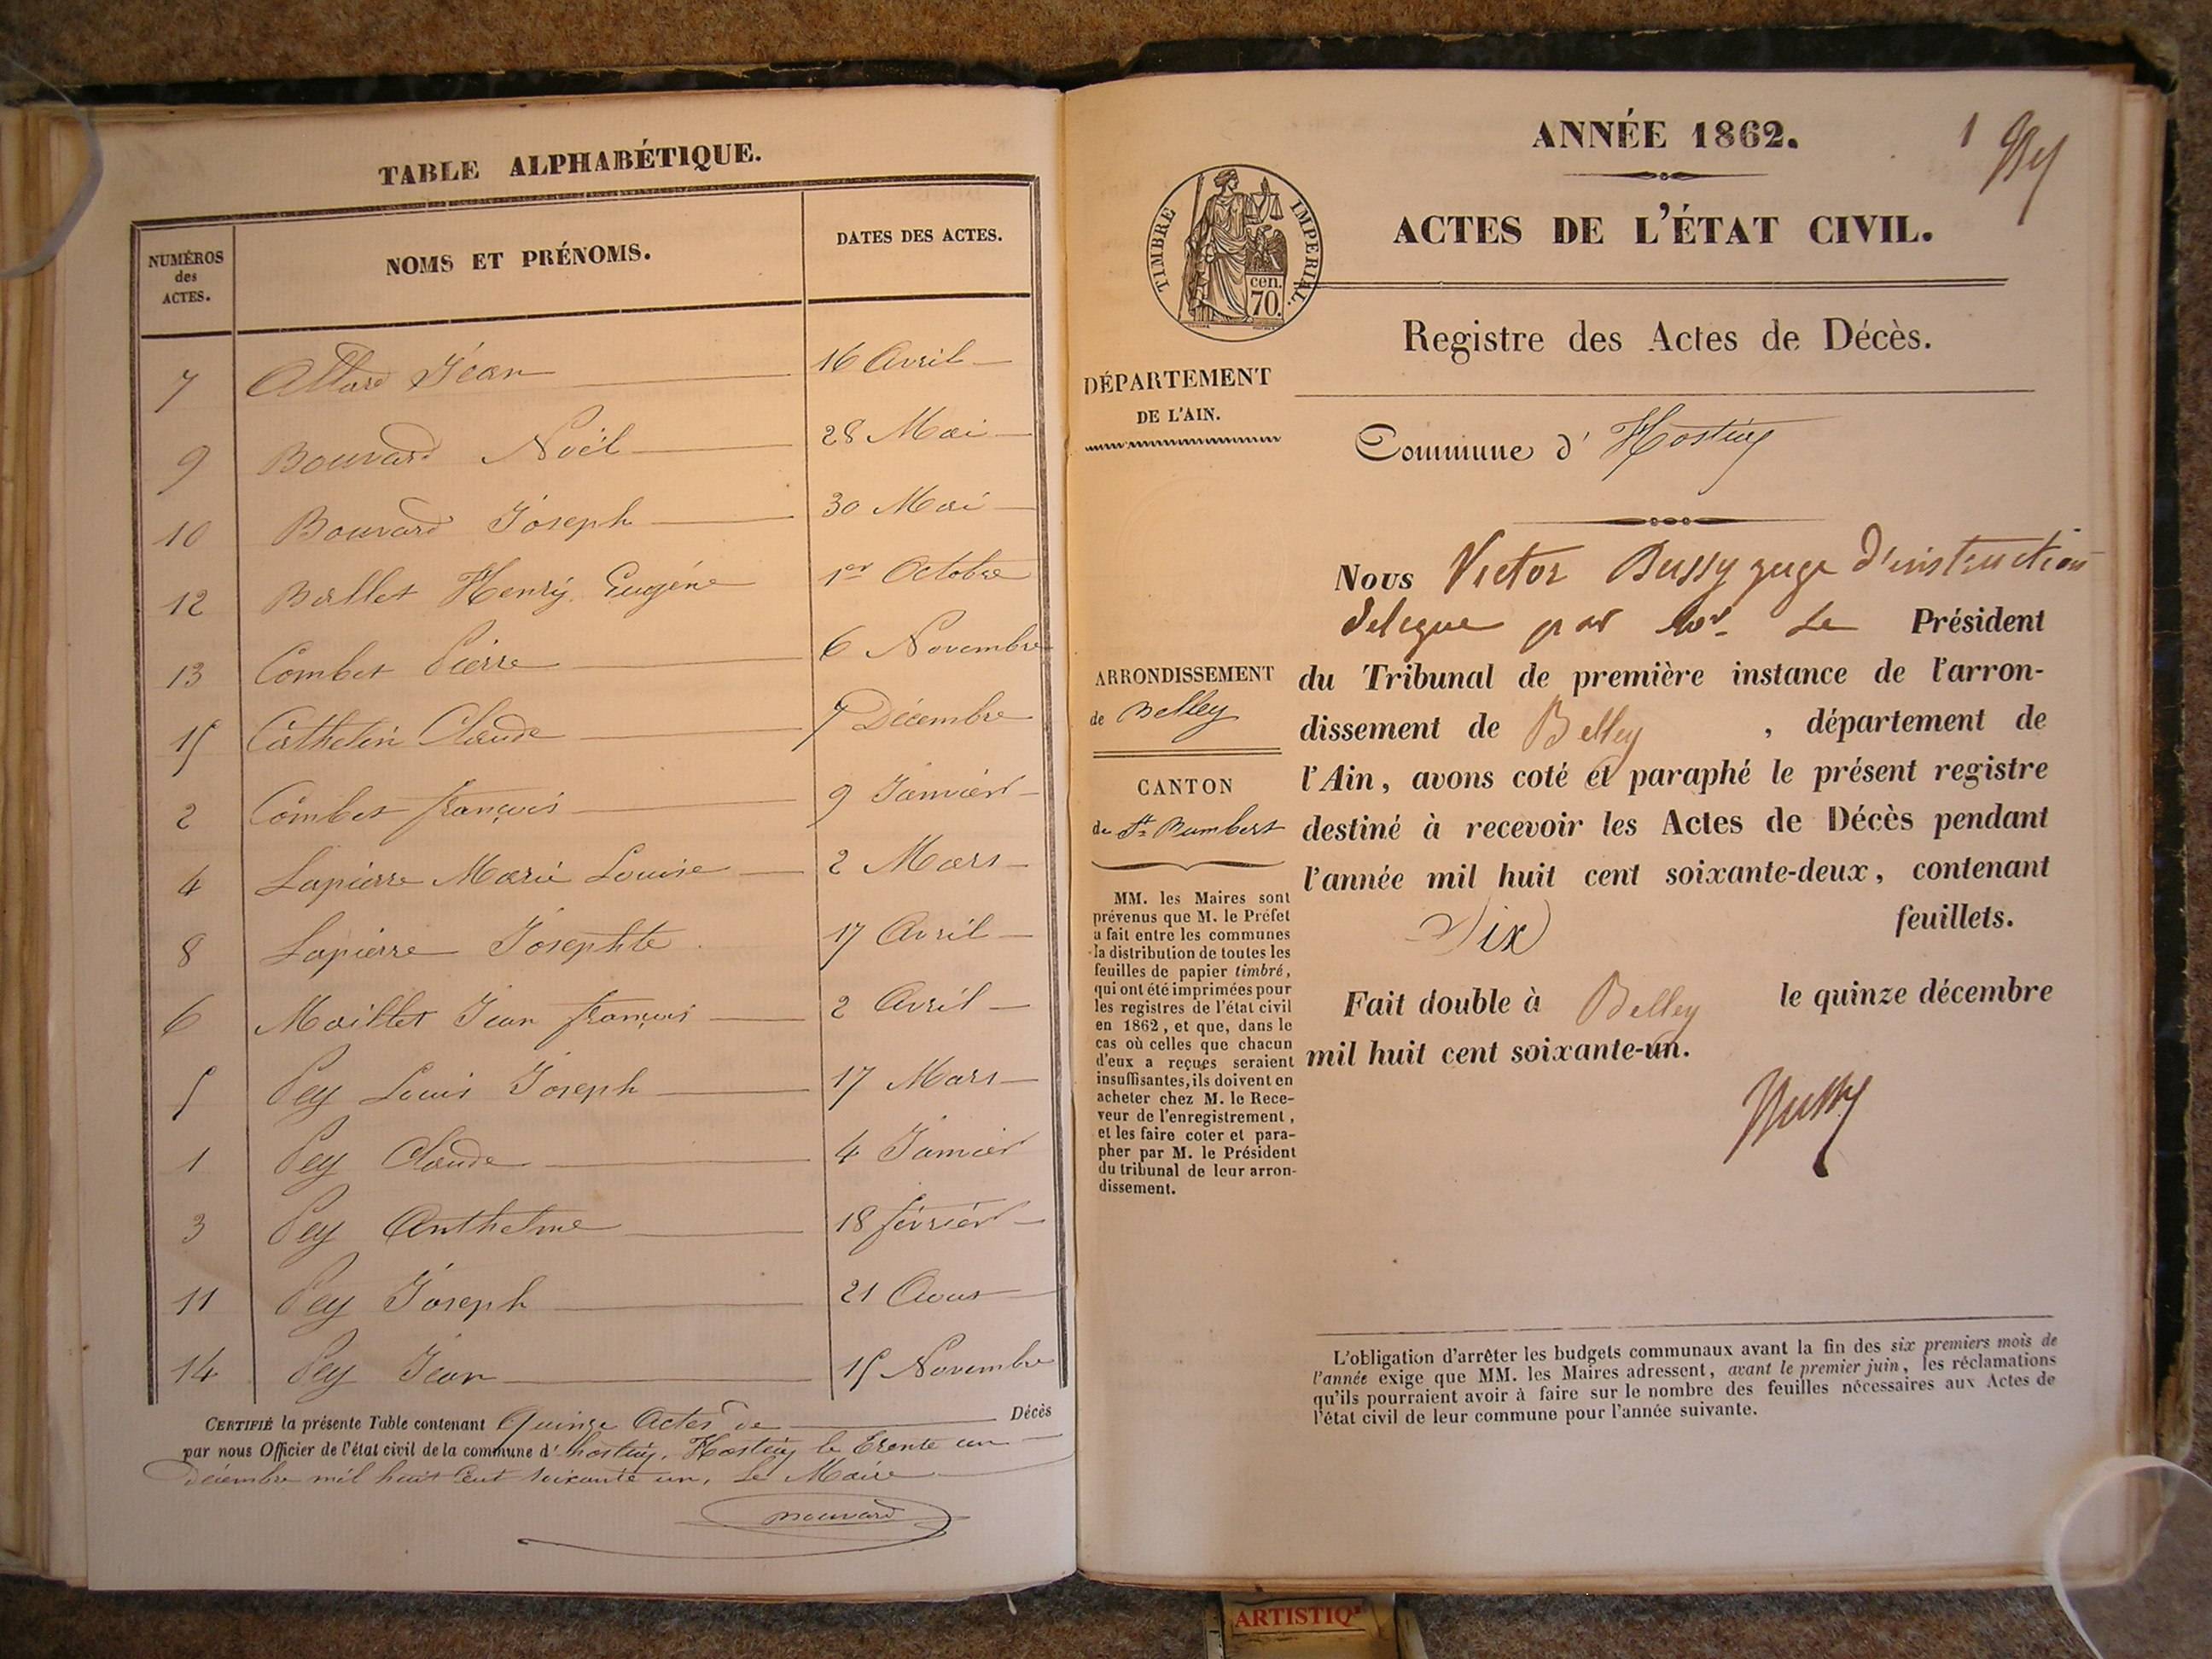 TABLE ALPHABÉTIQUE.
NUMÉROS des ACTES. NOMS ET PRÉNOMS. DATES DES ACTES.
7 Allard Jean 16 Avril
9 Bouvard Noël 28 Mai
10 Bouvard Joseph 30 Mai
12 Ballet Henry Eugène 1er Octobre
13 Combet Pierre 6 Novembre
15 Cathelin Claude 7 Décembre
2 Combet françois 9 Janvier
4 Lapierre Marie Louise 2 Mars
8 Lapierre Josephte 17 Avril
6 Maillet Jean françois 2 Avril
5 Pey Louis Joseph 17 Mars
1 Pey Claude 4 Janvier
3 Pey Anthelme 18 février
11 Pey Joseph 21 Aout
14 Pey Jean 15 Novembre
CERTIFIÉ la présente Table contenant Quinze Actes de Décès
par nous Officier de l'état civil de la commune d' hostiaz, Hostiaz le trente un
décembre mil huit Cent soixante un, Le Maire
Bouvard
1
ANNÉE 1862.
ACTES DE L'ÉTAT CIVIL.
TIMBRE IMPERIAL.
cen.
70.
Registre des Actes de Décès.
DÉPARTEMENT
DE L'AIN.
Commune d' Hostiaz
Nous Victor Bussy juge d'instruction
délégué par Mr Le Président
du Tribunal de première instance de l'arron-
dissement de Belley, département de
l'Ain, avons coté et paraphé le présent registre
destiné à recevoir les Actes de Décès pendant
l'année mil huit cent soixante-deux, contenant
Six feuillets.
Fait double à Belley le quinze décembre
mil huit cent soixante-un.
Bussy
ARRONDISSEMENT
de Belley
CANTON
de St Rambert
MM. les Maires sont
prévenus que M. le Préfet
a fait entre les communes
la distribution de toutes les
feuilles de papier timbré,
qui ont été imprimées pour
les registres de l'état civil
en 1862, et que, dans le
cas où celles que chacun
d'eux a reçues seraient
insuffisantes, ils doivent en
acheter chez M. le Rece-
veur de l'enregistrement,
et les faire coter et para-
pher par M. le Président
du tribunal de leur arron-
dissement.
L'obligation d'arrêter les budgets communaux avant la fin des six premiers mois de
l'année exige que MM. les Maires adressent, avant le premier juin, les réclamations
qu'ils pourraient avoir à faire sur le nombre des feuilles nécessaires aux Actes de
l'état civil de leur commune pour l'année suivante.
ARTISTIQ